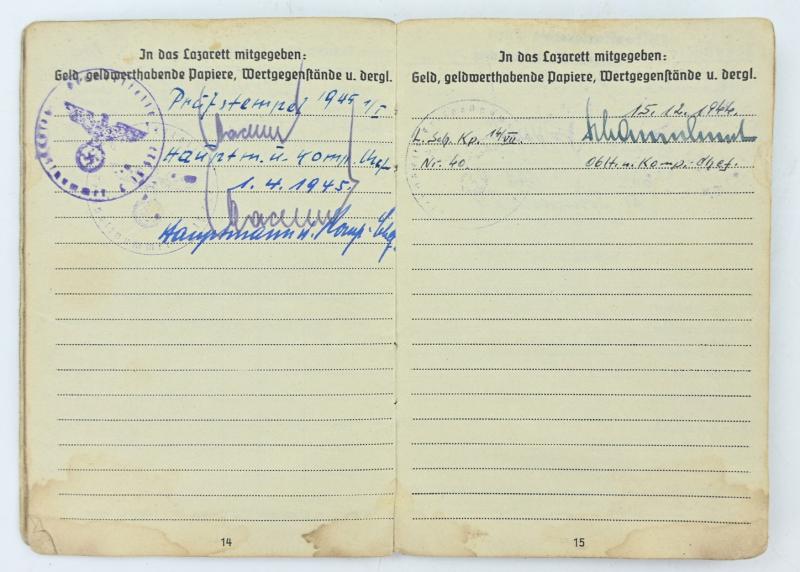 In das Lazarett mitgegeben:
Geld, geldwerthabende Papiere, Wertgegenstände u. dergl.
Prüfstempel 1945 1/I
Hauptm. u. Komp. Chef
1. 4. 1945
Hauptmann u. Komp.-Chef
14
In das Lazarett mitgegeben:
Geld, geldwerthabende Papiere, Wertgegenstände u. dergl.
15. 12. 1944.
L. Sch. Kp. 14/VII.
Nr. 40
Oblt. u. Komp.-Chef.
15